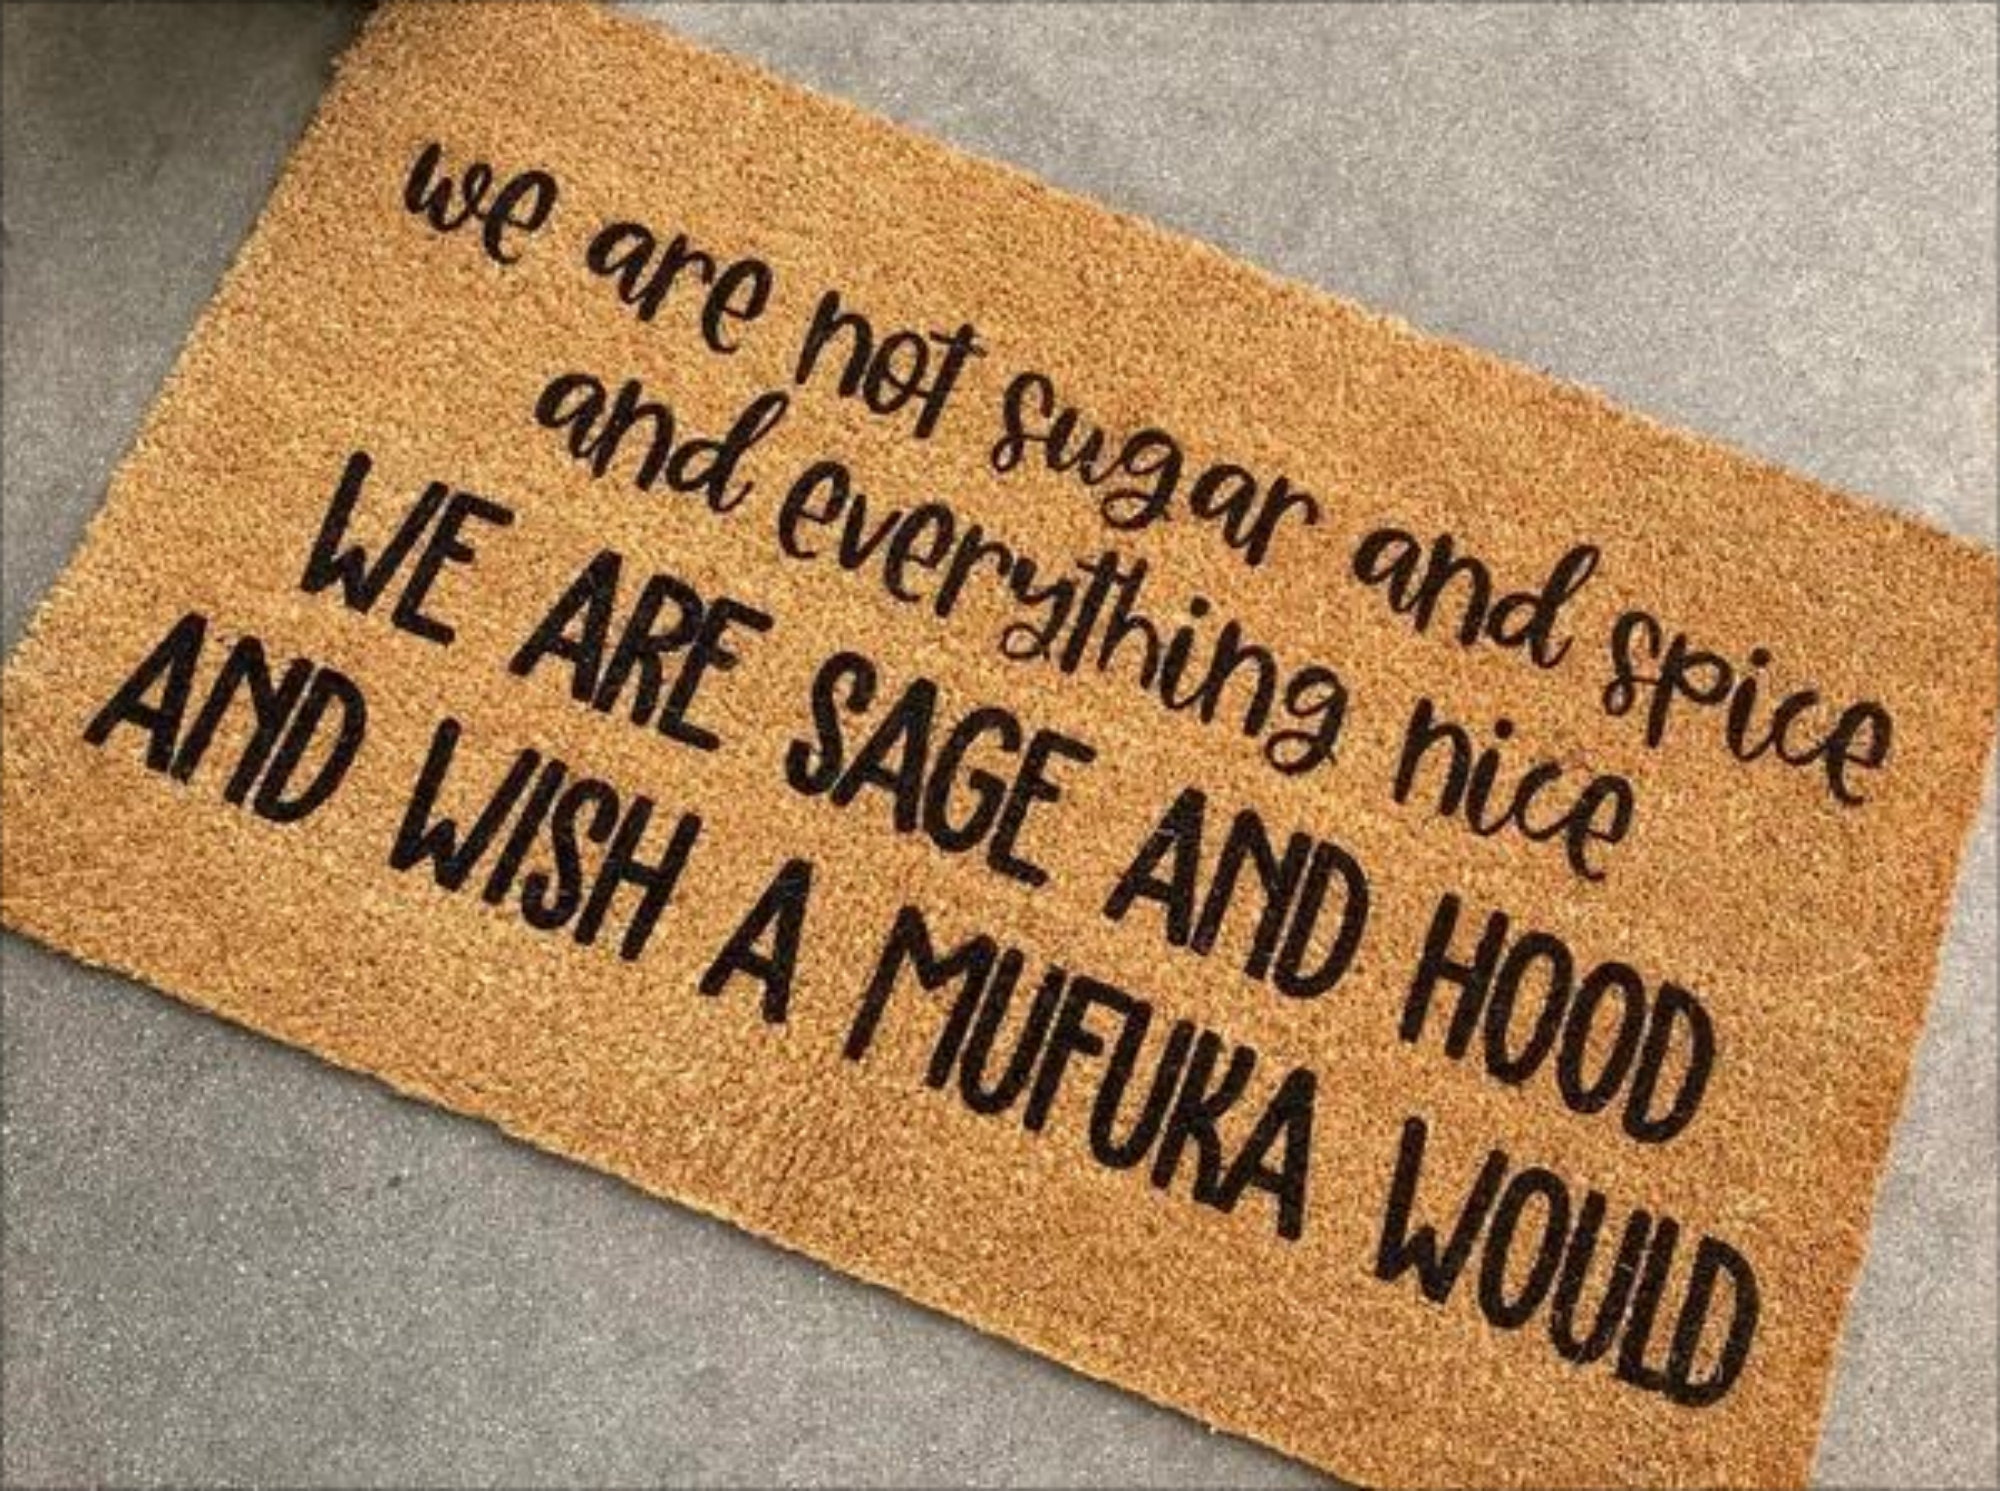 we are not sugar and spice
and everything nice
WE ARE SAGE AND HOOD
AND WISH A MUFUKA WOULD